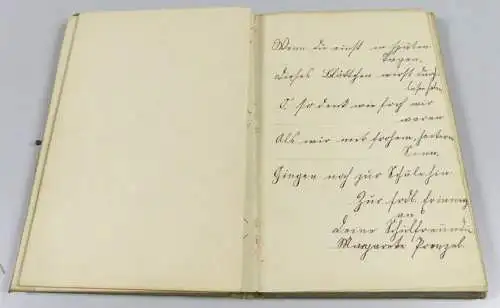 Wenn du einst in späten
Tagen,
Dieses Blättchen wirst durch-
lesen
O so denk wie froh wir
waren
Als wir mit frohem, heiterm
Sinn,
Gingen noch zur Schule hin
Zur frdl. Erinnerg
an
Deine Schulfreundin
Margarete Prenzel.